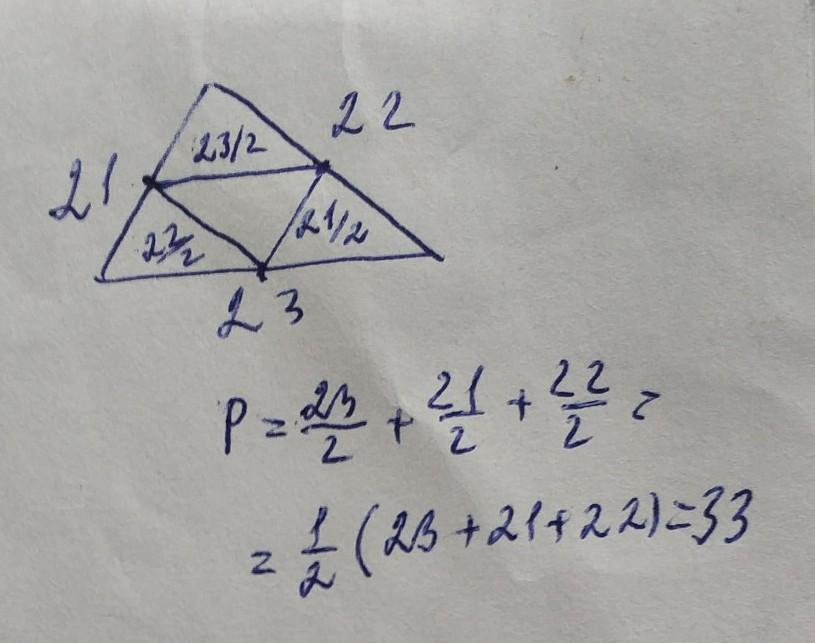 22
23/2
21
21/2
22/2
23
P = 23/2 + 21/2 + 22/2 =
= 1/2 (23 + 21 + 22) = 33